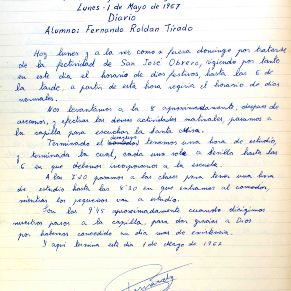 Lunes - 1 de Mayo de 1967
Diario
Alumno: Fernando Roldan Tirado
Hoy lunes y a la vez como si fuera domingo por tratarse
de la festividad de San José Obrero, rigiendo por tanto
en este día el horario de días festivos, hasta las 6 de
la tarde, a partir de esta hora seguía el horario de días
normales.
Nos levantamos a la 8 aproximadamente, después de
asearnos, y efectuar las demás actividades matinales, pasamos a
la capilla para escuchar la Santa Misa.
Terminado el desayuno tenemos una hora de estudio,
y terminada la cual, cada uno sale a Sevilla hasta las
6 en que debemos incorporarnos a la escuela.
A las 7'30 pasamos a las clases para tener una hora
de estudio hasta las 8'30 en que entramos al comedor,
mientras los pequeños van a estudio.
Son las 9'45 aproximadamente cuando dirigimos
nuestros pasos a la capilla, para dar gracias a Dios
por habernos concedido un día mas de existencia.
Y aquí termina este día 1 de Mayo de 1967
Fernando